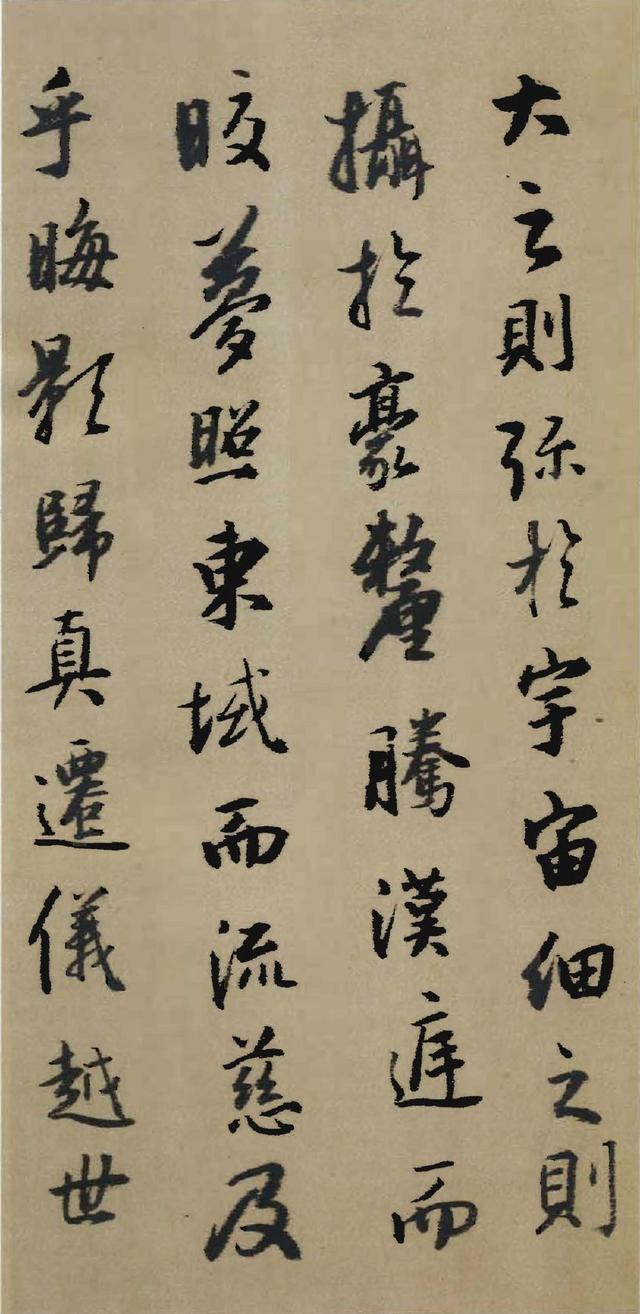 大之則弥於宇宙细之則
攝於豪釐騰漢遲而
晈夢照東域而流慈及
乎晦影歸真遷儀越世